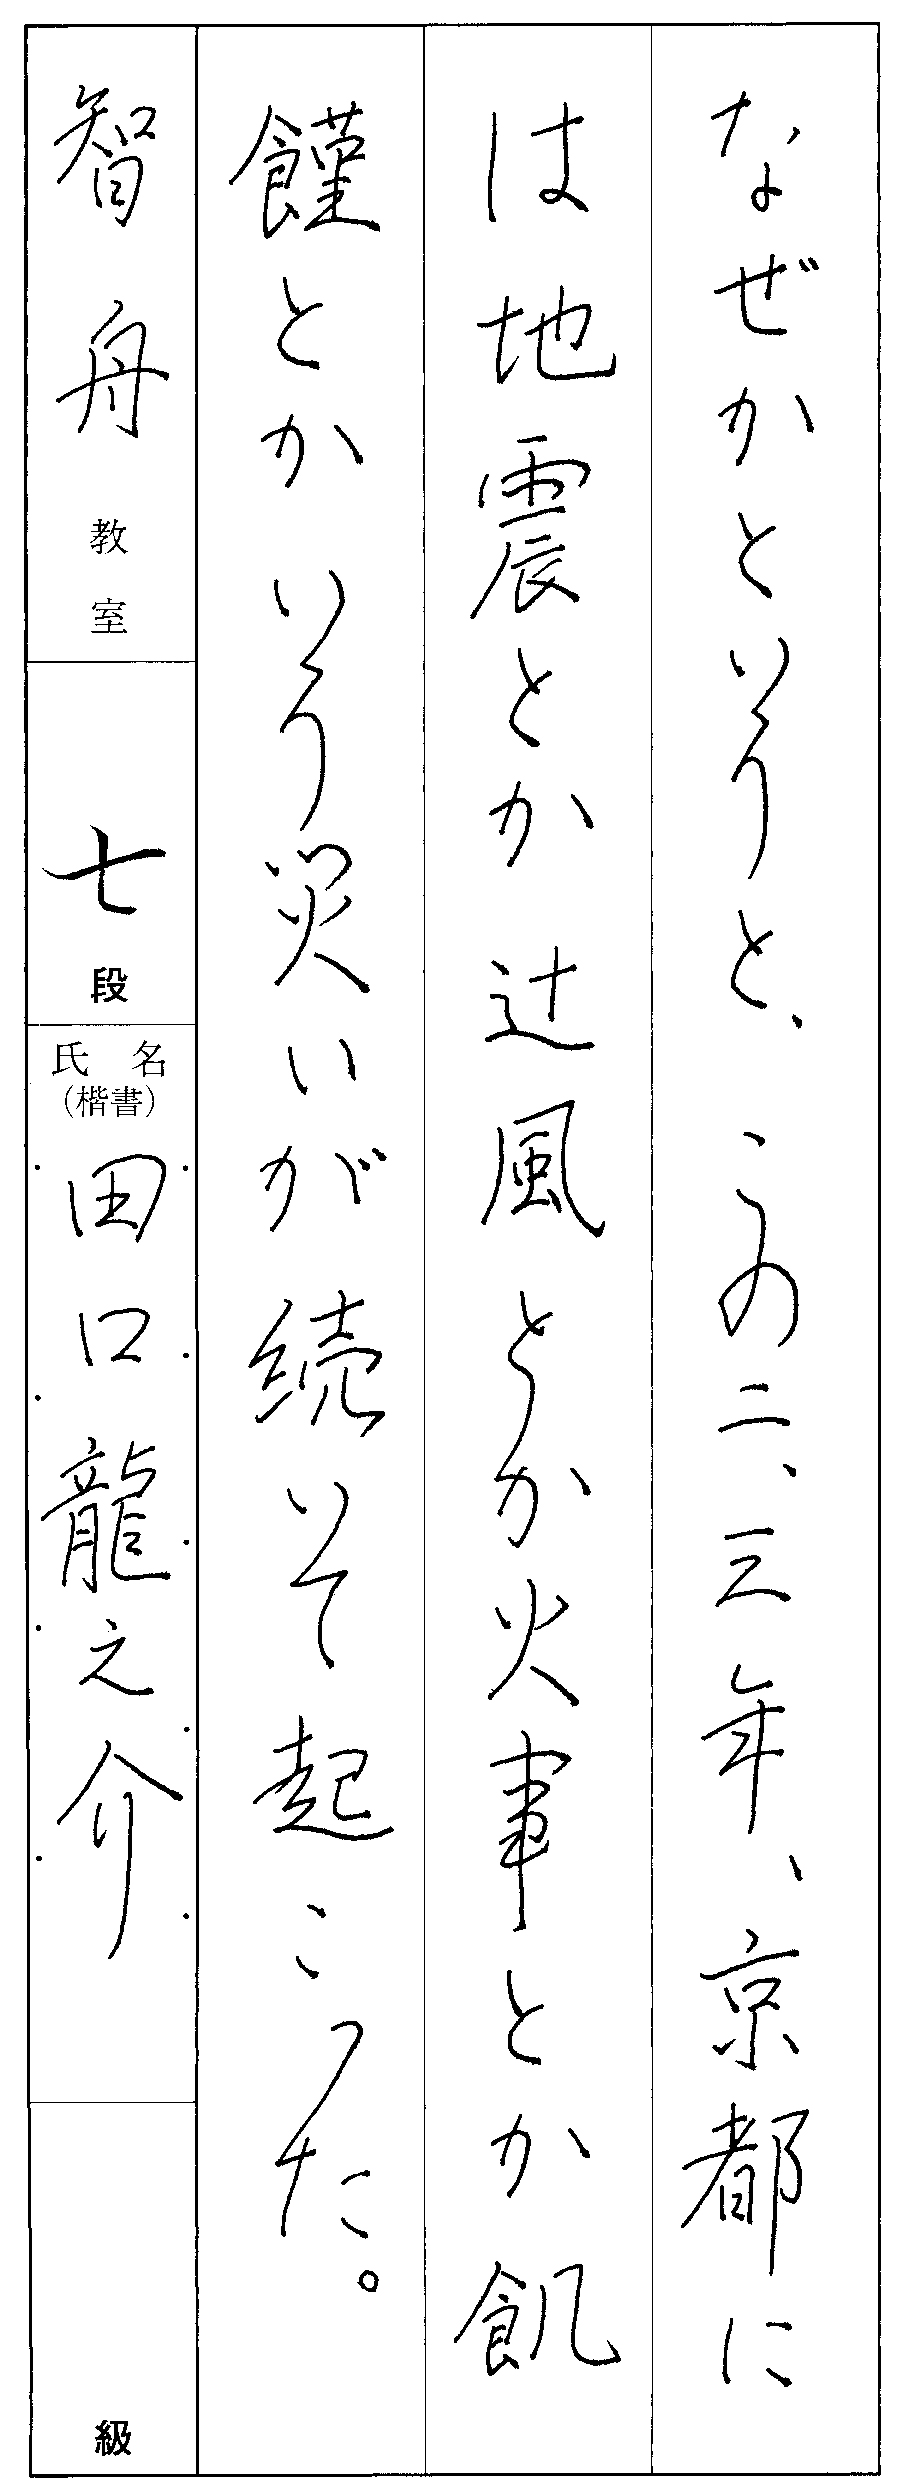 なぜかというと、この二、三年、京都に
は地震とか辻風とか火事とか飢
饉とかいう災いが続いて起こった。
智舟教室
七段
氏名
(楷書)
田口龍之介
級